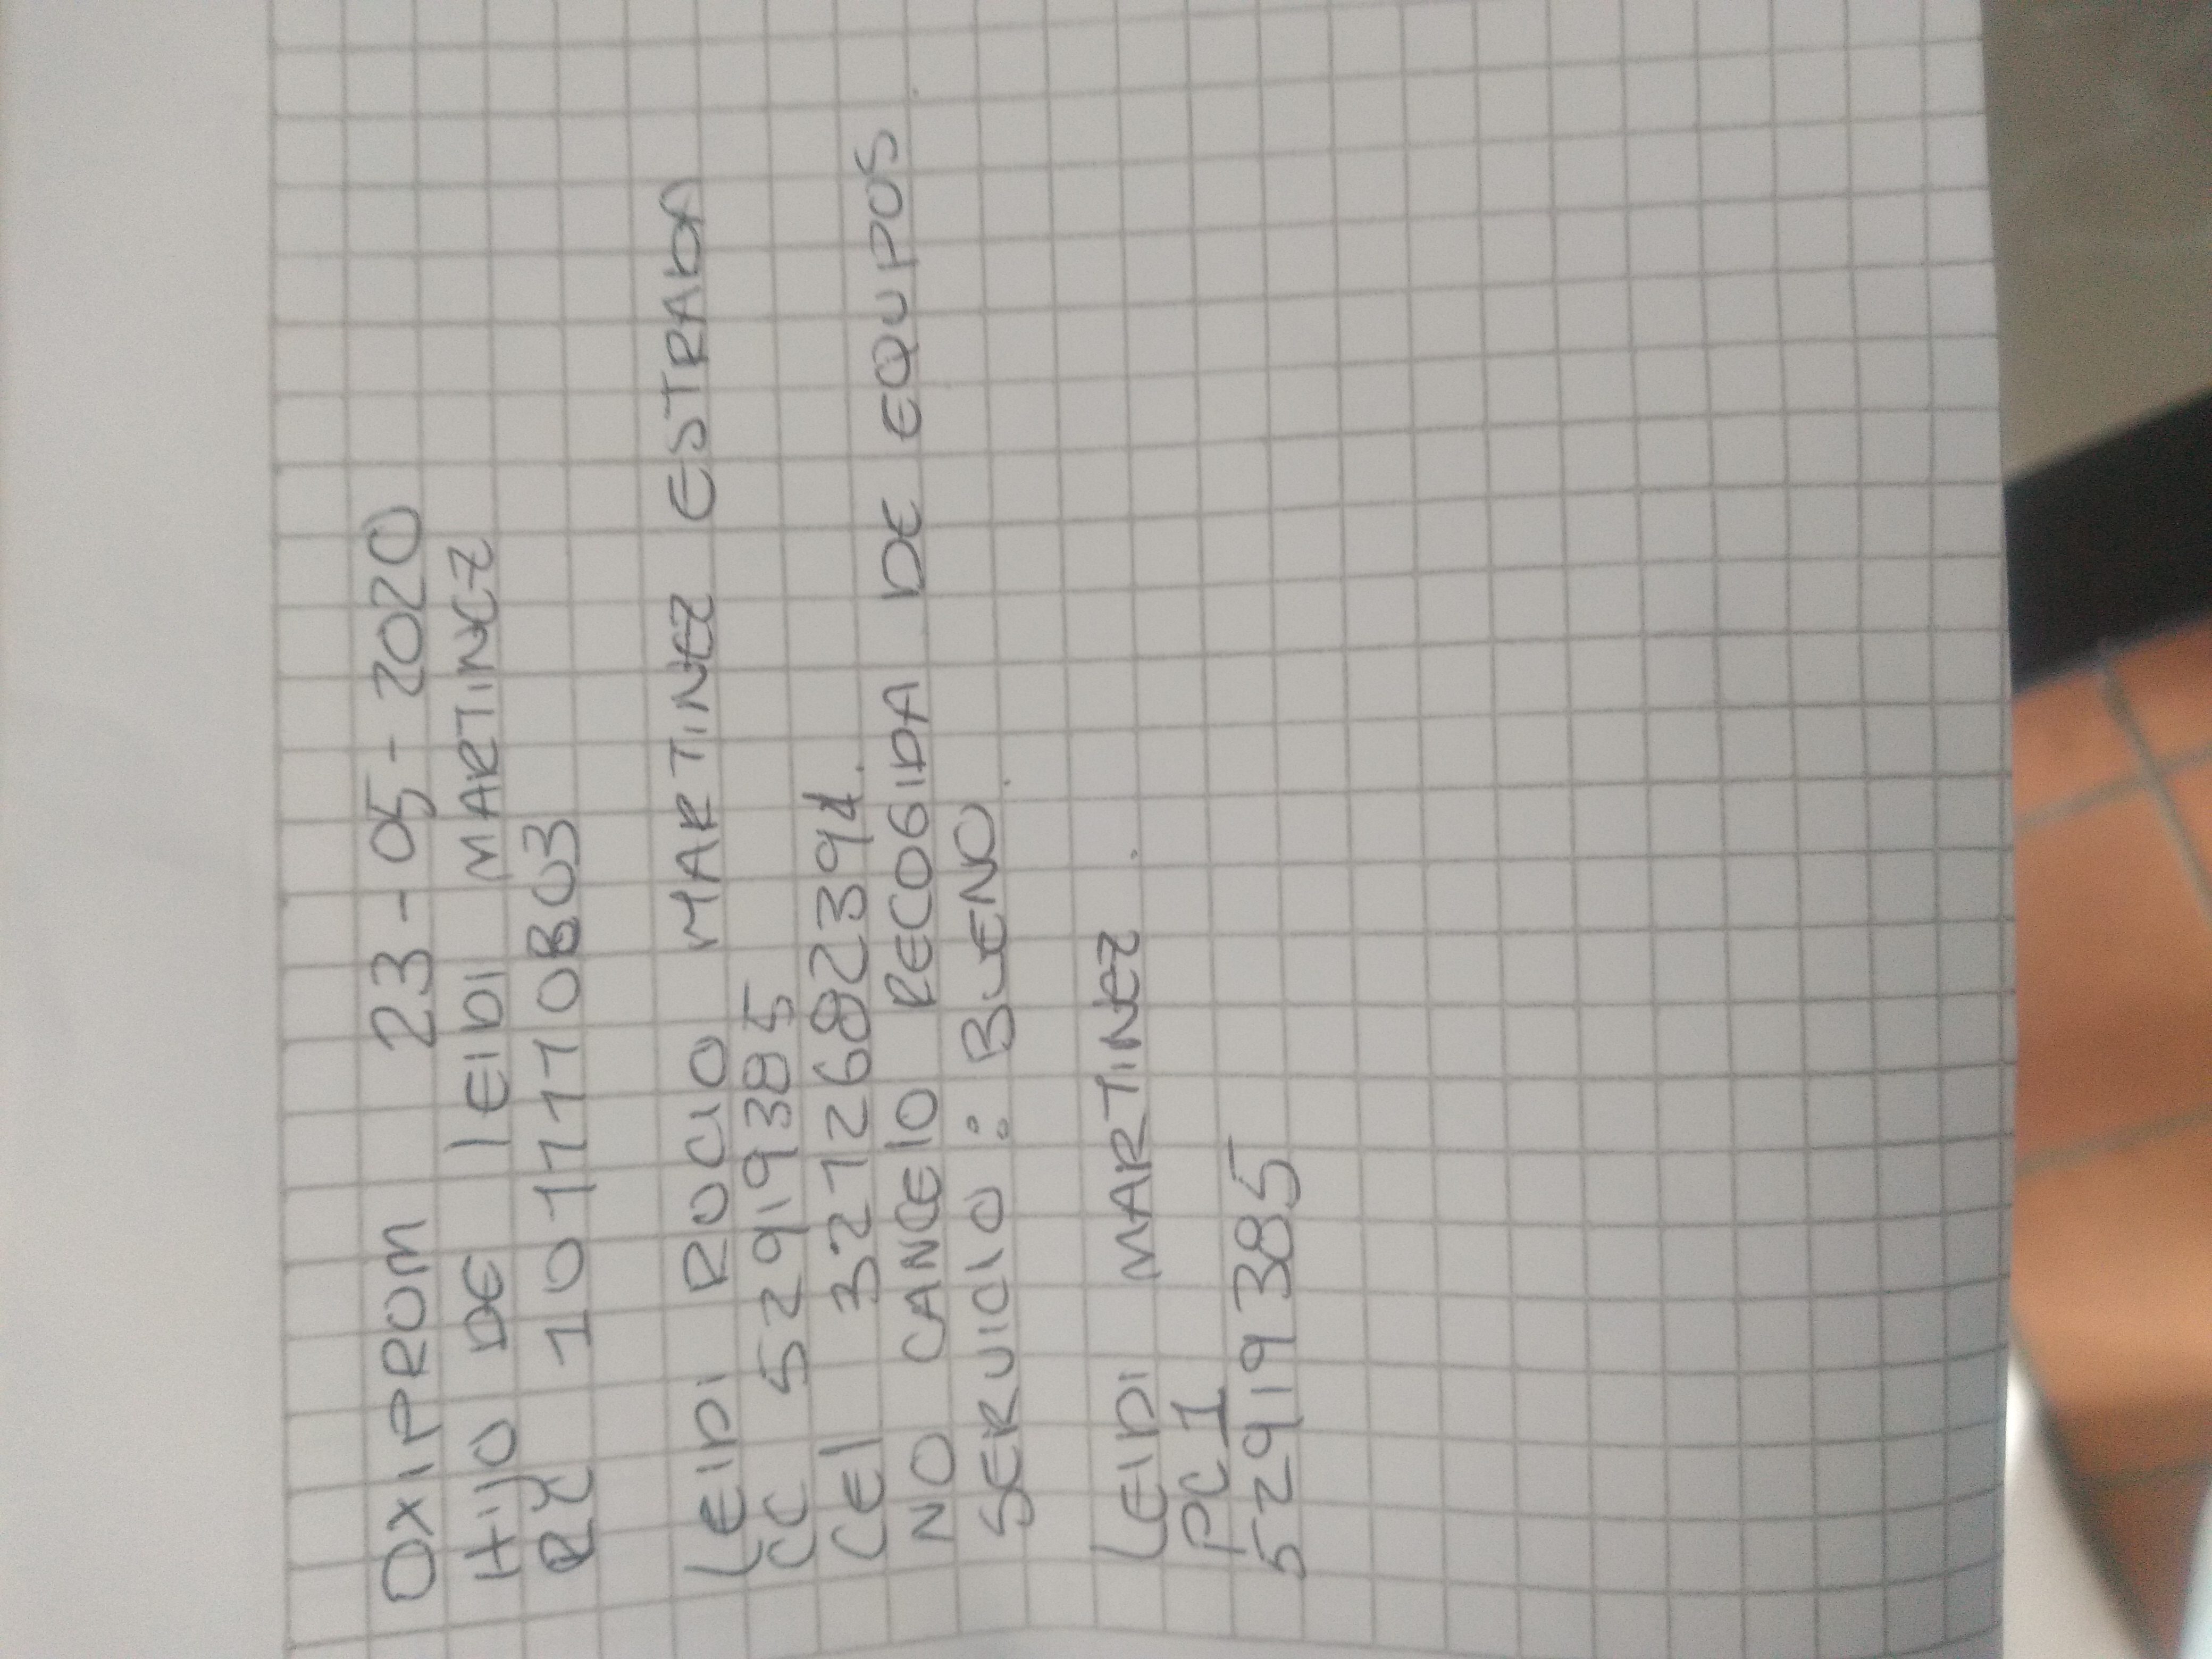 OXIPROM 23-05-2020
HIJO DE LEIDI MARTINEZ
RC 1011110803
LEIDI ROCIO MARTINEZ ESTRADA
CC 52919385
CEL
NO CANCELO RECOGIDA DE EQUPOS
SERVICIO: BUENO
LEIDI MARTINEZ.
PC1
52919385